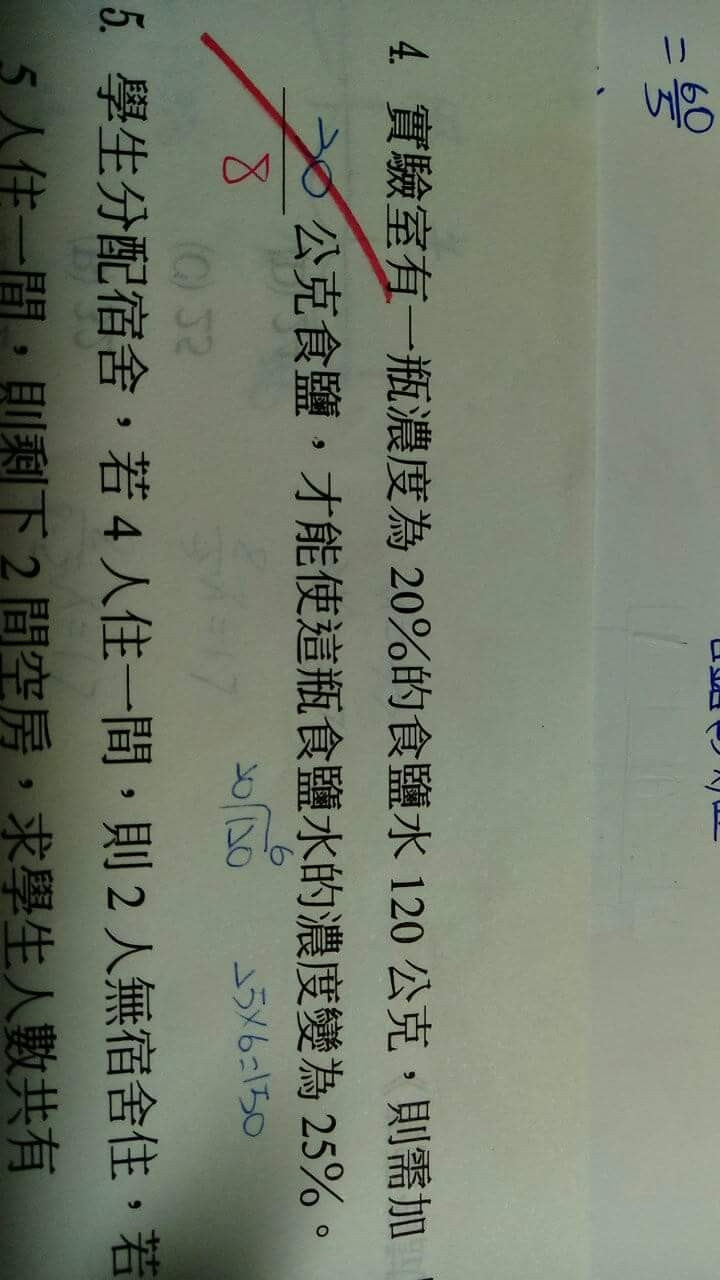 = 60/5
4. 實驗室有一瓶濃度為 20%的食鹽水 120 公克,則需加
30 公克食鹽,才能使這瓶食鹽水的濃度變為 25%。
8
6
20 120
25×6=150
5. 學生分配宿舍,若 4 人住一間,則 2 人無宿舍住,若
5 人住一間,則剩下 2 間空房,求學生人數共有